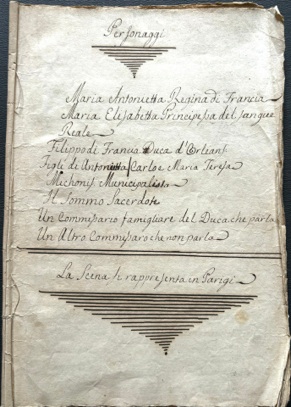 Personaggi
Maria Antonietta Regina di Francia
Maria Elisabetta Principessa del sangue
Reale
Filippo di Franco Duca d'Orleans
Figli di Antonietta Carlo e Maria Teresa
Michonis Municipalista
Il Sommo Sacerdote
Un Commissario famigliare del Duca che parla
Un Altro Commissaro che non parla
La Scena si rappresenta in Parigi